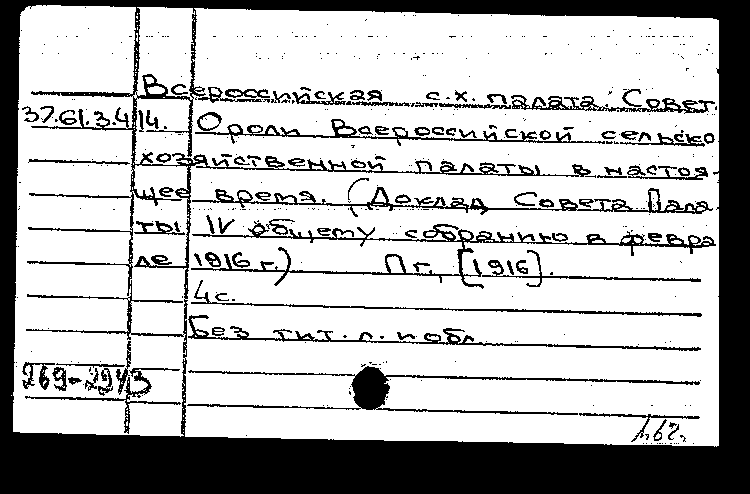 Всероссийская с.х. палата. Совет.
37.61.3.4 14. О роли Всероссийской сельско
хозяйственной палаты в настоя-
щее время. (Доклад Совета Пала
ты IV общему собранию в февра
ле 1916 г.) Пг., [1916].
4 с.
Без тит. л. и обл.
269-2943